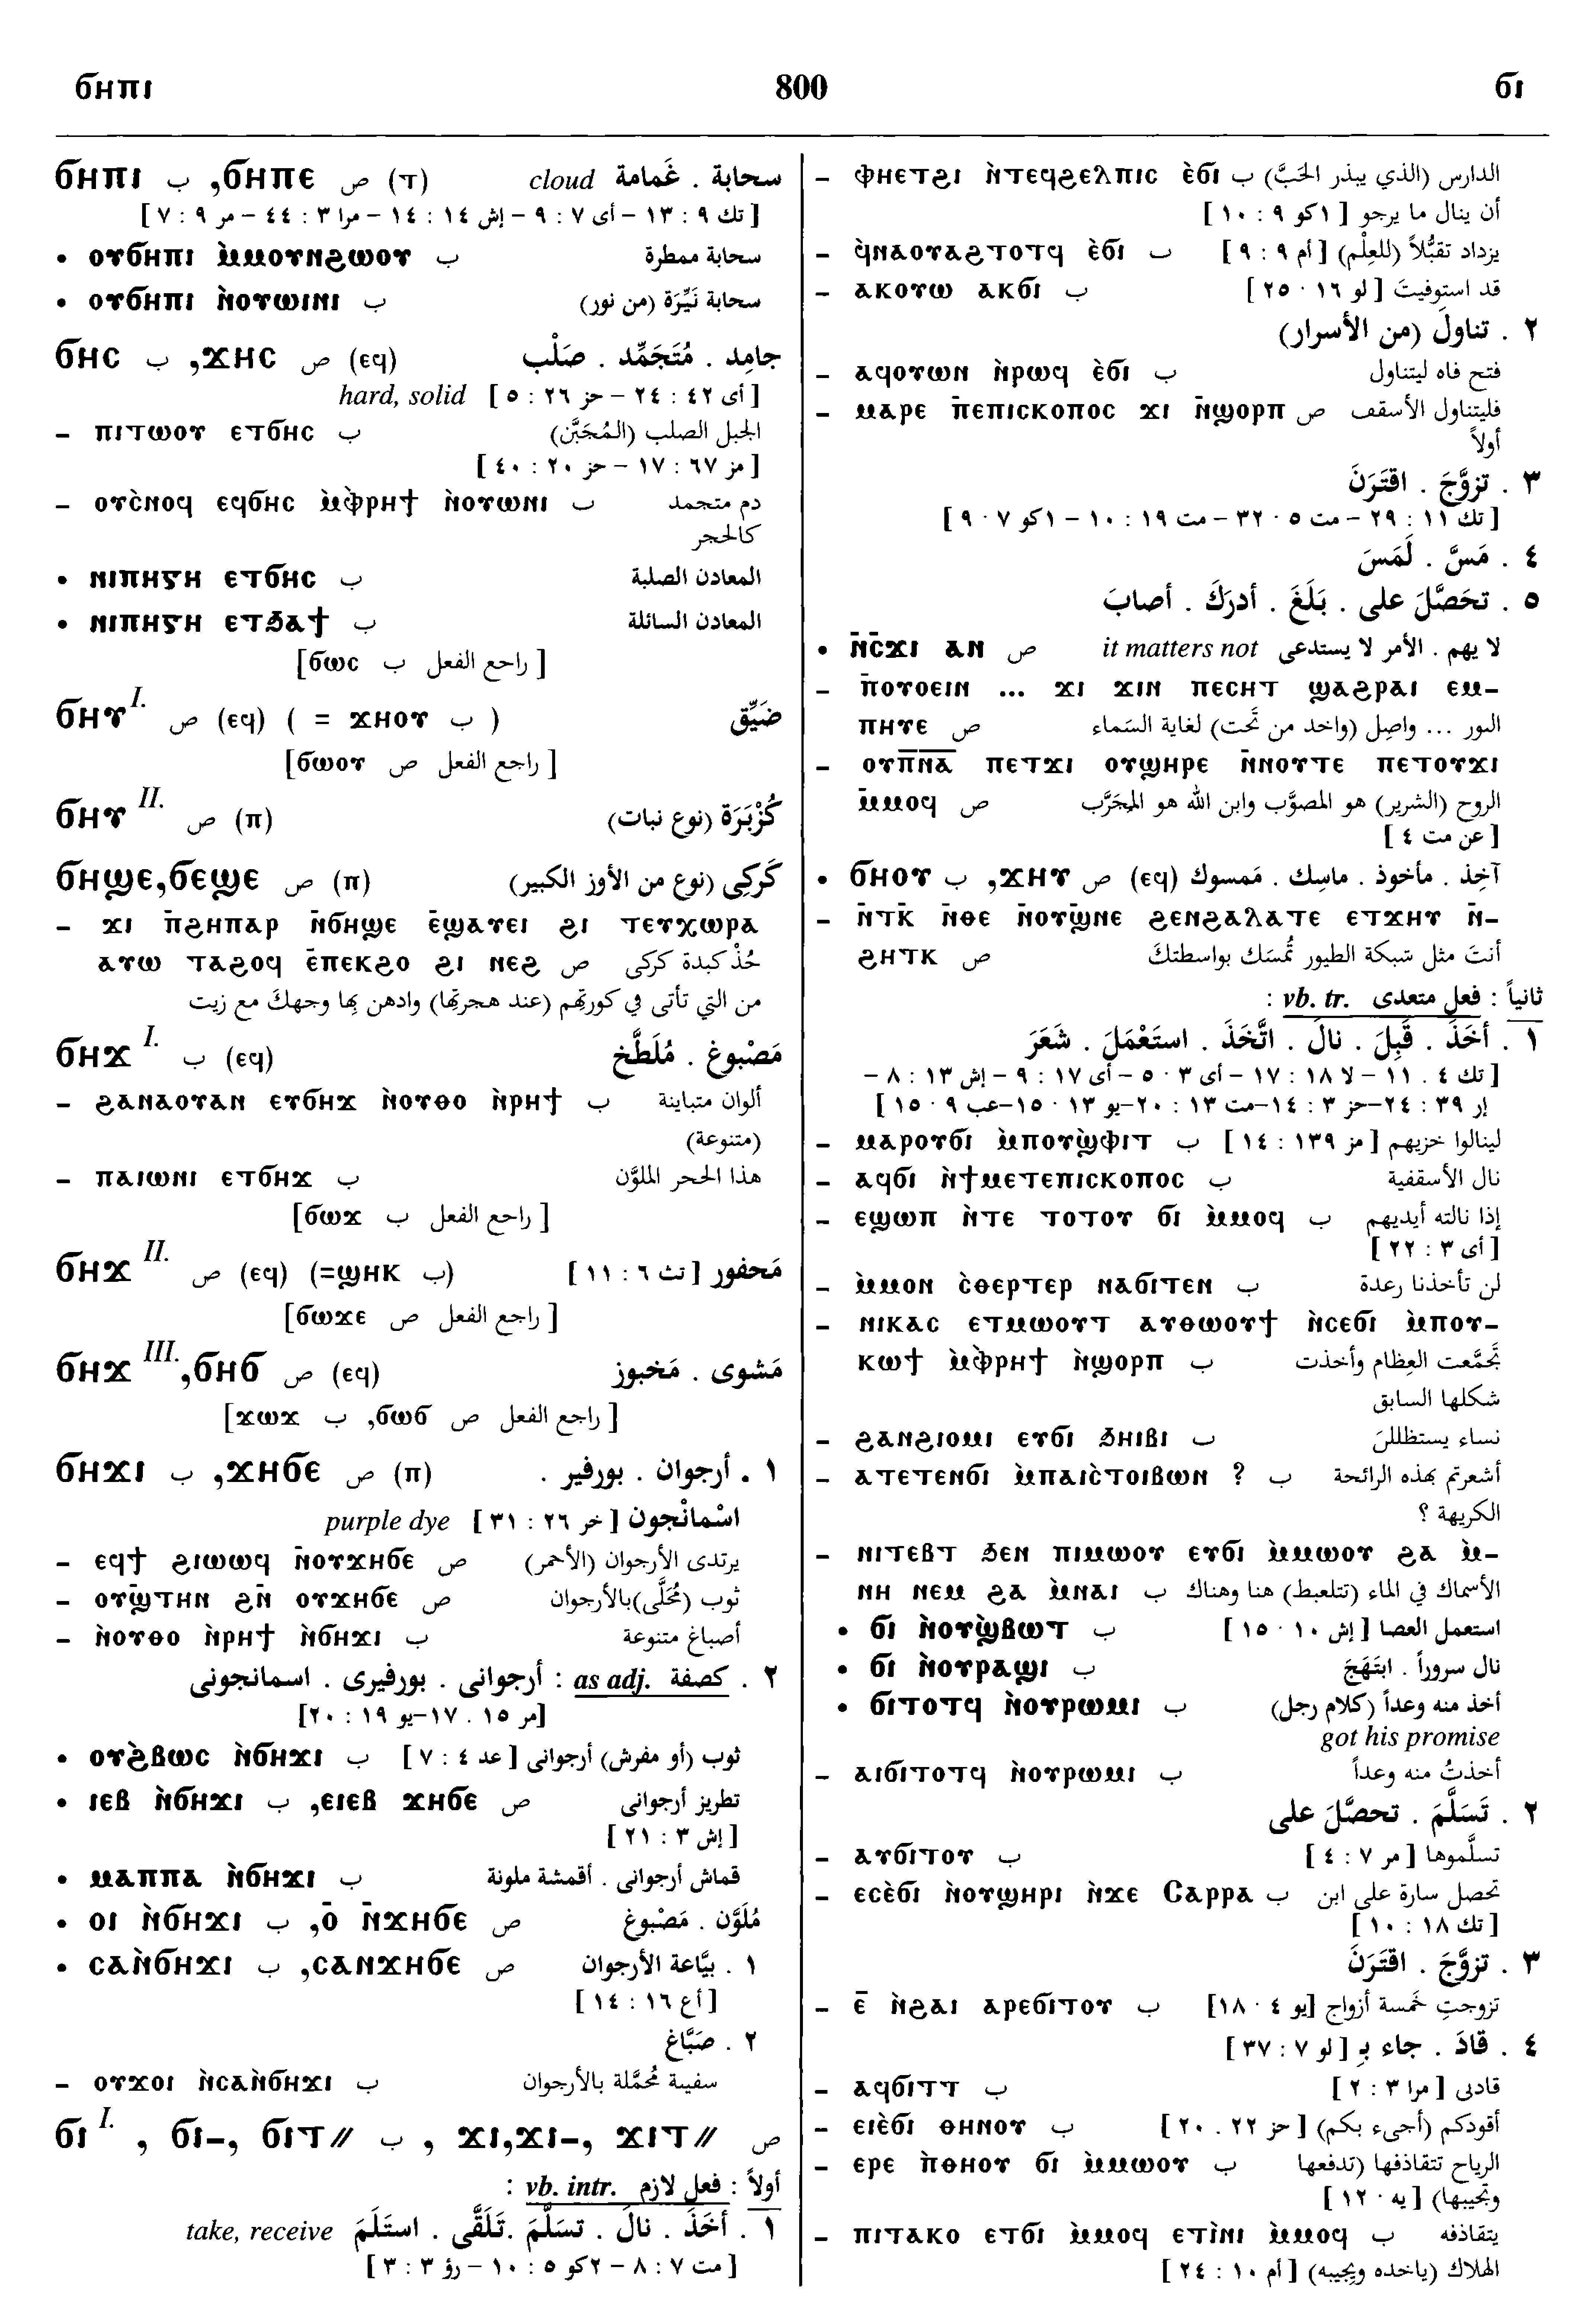 ϭⲏⲡⲓ 800 ϭⲓ
ϭⲏⲡⲓ ب ,ϭⲏⲡⲉ ص (ⲧ) سحابة . غَمامة cloud
[ تك ٩ : ١٣ – أى ٧ : ٩ – إش ١٤ : ١٤ – مرا ٣ : ٤٤ – مر ٩ : ٧ ]
• ⲟⲩϭⲏⲡⲓ ⲙ̀ⲙⲟⲩⲛϩⲱⲟⲩ ب سحابة ممطرة
• ⲟⲩϭⲏⲡⲓ ⲛ̀ⲟⲩⲱⲓⲛⲓ ب سحابة نَيِّرَة (من نور)
ϭⲏⲥ ب ,ϫⲏⲥ ص (ⲉϥ) جامِد . مُتَجَمِّد . صَلْب
[ أى ٤٢ : ٢٤ – حز ٢٦ : ٥ ] hard, solid
– ⲡⲓⲧⲱⲟⲩ ⲉⲧϭⲏⲥ ب الجبل الصلب (المُجَبَّن)
[ مز ٦٧ : ١٧ – حز ٢٠ : ٤٠ ]
– ⲟⲩⲥ̀ⲛⲟϥ ⲉϥϭⲏⲥ ⲙ̀ⲫⲣⲏϯ ⲛ̀ⲟⲩⲱⲛⲓ ب دم متجمد
كالحجر
• ⲛⲓⲡⲏⲅⲏ ⲉⲧϭⲏⲥ ب المعادن الصلبة
• ⲛⲓⲡⲏⲅⲏ ⲉⲧϧⲁϯ ب المعادن السائلة
[ راجع الفعل ب ϭⲱⲥ]
ϭⲏⲩ I. ص (ⲉϥ) ( = ϫⲏⲟⲩ ب ) ضَيِّق
[ راجع الفعل ص ϭⲱⲟⲩ]
ϭⲏⲩ II. ص (ⲡ) كُزْبَرَة (نوع نبات)
ϭⲏϣⲉ,ϭⲉϣⲉ ص (ⲡ) كَرَكِى (نوع من الأوز الكبير)
– ϫⲓ ⲡ̄ϩⲏⲡⲁⲣ ⲛ̄ϭⲏϣⲉ ⲉ̄ϣⲁⲩⲉⲓ ϩⲓ ⲧⲉⲩⲭⲱⲣⲁ
ⲁⲩⲱ ⲧⲁϩⲟϥ ⲉ̄ⲡⲉⲕϩⲟ ϩⲓ ⲛⲉϩ ص خُذ كبدة كركى
من التي تأتى في كورتهم (عند هجرتها) وادهن بها وجهك مع زيت
ϭⲏϫ I. ب (ⲉϥ) مَصْبوغ . مُلَطَّخ
– ϩⲁⲛⲁⲟⲩⲁⲛ ⲉⲩϭⲏϫ ⲛ̀ⲟⲩⲑⲟ ⲛ̀ⲣⲏϯ ب ألوان متباينة
(متنوعة)
– ⲡⲁⲓⲱⲛⲓ ⲉⲧϭⲏϫ ب هذا الحجر الملوَّن
[ راجع الفعل ب ϭⲱϫ]
ϭⲏϫ II. ص (ⲉϥ) (=ϣⲏⲕ ب) مَحفور [ تث ٦ : ١١ ]
[ راجع الفعل ص ϭⲱϫⲉ]
ϭⲏϫ III. ,ϭⲏϭ ص (ⲉϥ) مَشوى . مَخبوز
[ راجع الفعل ص ϭⲱϭ, ب ϫⲱϫ]
ϭⲏϫⲓ ب ,ϫⲏϭⲉ ص (ⲡ) ١ . أرجوان . بورفير .
اسْمانْجون [ خر ٢٦ : ٣١ ] purple dye
– ⲉϥϯ ϩⲓⲱⲱϥ ⲛ̄ⲟⲩϫⲏϭⲉ ص يرتدى الأرجوان (الأحمر)
– ⲟⲩϣ̄ⲧⲏⲛ ϩⲛ̄ ⲟⲩϫⲏϭⲉ ص ثوب (مُحَلَّى)بالأرجوان
– ⲛ̀ⲟⲩⲑⲟ ⲛ̀ⲣⲏϯ ⲛ̀ϭⲏϫⲓ ب أصباغ متنوعة
٢ . كصفة as adj. : أرجوانى . بورفيرى . اسمانجونى
[مر ١٥ . ١٧–يو ١٩ : ٢٠]
• ⲟⲩϩ̀ⲃⲱⲥ ⲛ̀ϭⲏϫⲓ ب ثوب (أو مفرش) أرجوانى [ عد ٤ : ٧ ]
• ⲓⲉⲃ ⲛ̀ϭⲏϫⲓ ب ,ⲉⲓⲉⲃ ϫⲏϭⲉ ص تطريز أرجوانى
[ إش ٣ : ٢١ ]
• ⲙⲁⲡⲡⲁ ⲛ̀ϭⲏϫⲓ ب قماش أرجوانى . أقمشة ملونة
• ⲟⲓ ⲛ̀ϭⲏϫⲓ ب ,ⲟ̄ ⲛ̄ϫⲏϭⲉ ص مُلَوَّن . مَصْبوغ
• ⲥⲁⲛ̀ϭⲏϫⲓ ب ,ⲥⲁⲛϫⲏϭⲉ ص ١ . بيَّاعة الأرجوان
[ أع ١٦ : ١٤ ]
٢ . صَبَّاغ
– ⲟⲩϫⲟⲓ ⲛ̀ⲥⲁⲛ̀ϭⲏϫⲓ ب سفينة مُحمَّلة بالأرجوان
ϭⲓ I. , ϭⲓ–, ϭⲓⲧ// ب , ϫⲓ,ϫⲓ–, ϫⲓⲧ// ص
أولاً : فعل لازم vb. intr. :
١ . أخَذَ . نالَ . تسَلَّمَ .تَلَقَّى . استَلَمَ take, receive
[ مت ٧ : ٨ – ٢كو ٥ : ١٠ – رؤ ٣ : ٣ ]
– ⲫⲏⲉⲧϩⲓ ⲛ̀ⲧⲉϥϩⲉⲗⲡⲓⲥ ⲉ̀ϭⲓ ب الدارس (الذي يبذر الحَبَّ)
أن ينال ما يرجو [ ١كو ٩ : ١٠ ]
– ϥ̀ⲛⲁⲟⲩⲁϩⲧⲟⲧϥ ⲉ̀ϭⲓ ب يزداد تقبُّلاً (للعِلْم) [ أم ٩ : ٩ ]
– ⲁⲕⲟⲩⲱ ⲁⲕϭⲓ ب قد استوفيتَ [ لو ١٦ ٠ ٢٥ ]
٢ . تناولَ (من الأسرار)
– ⲁϥⲟⲩⲱⲛ ⲛ̀ⲣⲱϥ ⲉ̀ϭⲓ ب فتح فاه ليتناول
– ⲙⲁⲣⲉ ⲡ̄ⲉⲡⲓⲥⲕⲟⲡⲟⲥ ϫⲓ ⲛ̄ϣⲟⲣⲡ ص فليتناول الأسقف
أولاً
٣ . تزوَّجَ . اقتَرَنَ
[ تك ١١ : ٢٩ – مت ٥ ٠ ٣٢ – مت ١٩ : ١٠ – ١كو ٧ ٠ ٩ ]
٤ . مَسَّ . لَمَسَ
٥ . تحَصَّلَ على . بَلَغَ . أدرَكَ . أصابَ
• ⲛ̄ⲥ̄ϫⲓ ⲁⲛ ص لا يهم . الأمر لا يستدعى it matters not
– ⲡ̄ⲟⲩⲟⲉⲓⲛ ... ϫⲓ ϫⲓⲛ ⲡⲉⲥⲏⲧ ϣⲁϩⲣⲁⲓ ⲉⲙ–
ⲡⲏⲩⲉ ص النور ... واصِل (واخد من تَحت) لغاية السَماء
– ⲟⲩⲡ̄ⲛ̄ⲁ̄ ⲡⲉⲧϫⲓ ⲟⲩϣⲏⲣⲉ ⲛ̄ⲛⲟⲩⲧⲉ ⲡⲉⲧⲟⲩϫⲓ
ⲙ̄ⲙⲟϥ ص الروح (الشرير) هو المصوَّب وابن الله هو المجَرَّب
[ عن مت ٤ ]
• ϭⲏⲟⲩ ب ,ϫⲏⲩ ص (ⲉϥ) آخِذ . مأخوذ . ماسِك . مَمسوك
– ⲛ̄ⲧⲕ̄ ⲛ̄ⲑⲉ ⲛ̄ⲟⲩϣ̄ⲛⲉ ϩⲉⲛϩⲁⲗⲁⲧⲉ ⲉⲧϫⲏⲩ ⲛ̄–
ϩⲏⲧⲕ ص أنتَ مثل شبكة الطيور تُمسَك بواسطتكَ
ثانياً : فعل متعدى vb. tr. :
١ . أخَذَ . قَبِلَ . نالَ . اتَّخَذَ . استَعْمَلَ . شَعَرَ
[ تك ٤ . ١١ – لا ١٨ : ١٧ – أى ٣ ٠ ٥ – أى ١٧ : ٩ – إش ١٣ : ٨ –
إر ٣٩ : ٢٤–حز ٣ : ١٤–مت ١٣ : ٢٠–يو ١٣ ٠ ١٥–عب ٩ ٠ ١٥ ]
– ⲙⲁⲣⲟⲩϭⲓ ⲙ̀ⲡⲟⲩϣ̀ⲫⲓⲧ ب لينالوا خزيهم [ مز ١٣٩ : ١٤ ]
– ⲁϥϭⲓ ⲛ̀ϯⲙⲉⲧⲉⲡⲓⲥⲕⲟⲡⲟⲥ ب نال الأسقفية
– ⲉϣⲱⲡ ⲛ̀ⲧⲉ ⲧⲟⲧⲟⲩ ϭⲓ ⲙ̀ⲙⲟϥ ب إذا نالته أيديهم
[ أى ٣ : ٢٢ ]
– ⲙ̀ⲙⲟⲛ ⲥ̀ⲑⲉⲣⲧⲉⲣ ⲛⲁϭⲓⲧⲉⲛ ب لن تأخذنا رعدة
– ⲛⲓⲕⲁⲥ ⲉⲧⲙⲱⲟⲩⲧ ⲁⲩⲑⲱⲟⲩϯ ⲛ̀ⲥⲉϭⲓ ⲙ̀ⲡⲟⲩ–
ⲕⲱϯ ⲙ̀ⲫⲣⲏϯ ⲛ̀ϣⲟⲣⲡ ب تَجمَّعت العِظام وأخذت
شكلها السابق
– ϩⲁⲛϩⲓⲟⲙⲓ ⲉⲩϭⲓ ϧⲏⲓⲃⲓ ب نساء يستظللنَ
– ⲁⲧⲉⲧⲉⲛϭⲓ ⲙ̀ⲡⲁⲓⲥ̀ⲧⲟⲓⲃⲱⲛ ? ب أشعرتم بهذه الرائحة
الكريهة ؟
– ⲛⲓⲧⲉⲃⲧ ϧⲉⲛ ⲡⲓⲙⲱⲟⲩ ⲉⲩϭⲓ ⲙ̀ⲙⲱⲟⲩ ϩⲁ ⲙ̀–
ⲛⲏ ⲛⲉⲙ ϩⲁ ⲙ̀ⲛⲁⲓ ب الأسماك في الماء (تتلعبط) هنا وهناك
• ϭⲓ ⲛ̀ⲟⲩϣ̀ⲃⲱⲧ ب استعمل العصا [ إش ١٠ ٠ ١٥ ]
• ϭⲓ ⲛ̀ⲟⲩⲣⲁϣⲓ ب نال سروراً . ابتَهَجَ
• ϭⲓⲧⲟⲧϥ ⲛ̀ⲟⲩⲣⲱⲙⲓ ب أخذ منه وعداً (كلام رجل)
got his promise
– ⲁⲓϭⲓⲧⲟⲧϥ ⲛ̀ⲟⲩⲣⲱⲙⲓ ب أخذتُ منه وعداً
٢ . تَسَلَّمَ . تحصَّلَ على
– ⲁⲩϭⲓⲧⲟⲩ ب تسلَّموها [ مر ٧ : ٤ ]
– ⲉⲥⲉ̀ϭⲓ ⲛ̀ⲟⲩϣⲏⲣⲓ ⲛ̀ϫⲉ Ⲥⲁⲣⲣⲁ ب تحصل سارة على ابن
[ تك ١٨ : ١٠ ]
٣ . تزوَّجَ . اقتَرَنَ
– ⲉ̄ ⲛ̀ϩⲁⲓ ⲁⲣⲉϭⲓⲧⲟⲩ ب تزوجتِ خَمسة أزواج [يو ٤ ٠ ١٨]
٤ . قادَ . جاء بِـ [ لو ٧ : ٣٧ ]
– ⲁϥϭⲓⲧⲧ ب قادنى [ مرا ٣ : ٢ ]
– ⲉⲓⲉ̀ϭⲓ ⲑⲏⲛⲟⲩ ب أقودكم (أجىء بكم) [ حز ٢٢ . ٢٠ ]
– ⲉⲣⲉ ⲡ̀ⲑⲏⲟⲩ ϭⲓ ⲙ̀ⲙⲱⲟⲩ ب الرياح تتقاذفها (تدفعها
وتجيبها) [ يه ٠ ١٢ ]
– ⲡⲓⲧⲁⲕⲟ ⲉⲧϭⲓ ⲙ̀ⲙⲟϥ ⲉⲧⲓ̀ⲛⲓ ⲙ̀ⲙⲟϥ ب يتقاذفه
الهلاك (ياخده ويجيبه) [ أم ١٠ : ٢٤ ]